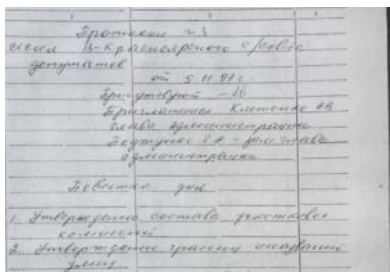 Протокол № 3
сессии В-Красноярского с/совета
депутатов
от 5.11.97 г.
Присутствуют - 16
Приглашены
глава администрации
- зам. глава
администрации
Повестка дня
1. Утверждение состава участковых
комиссий
2. Утверждение границ и названий
улиц